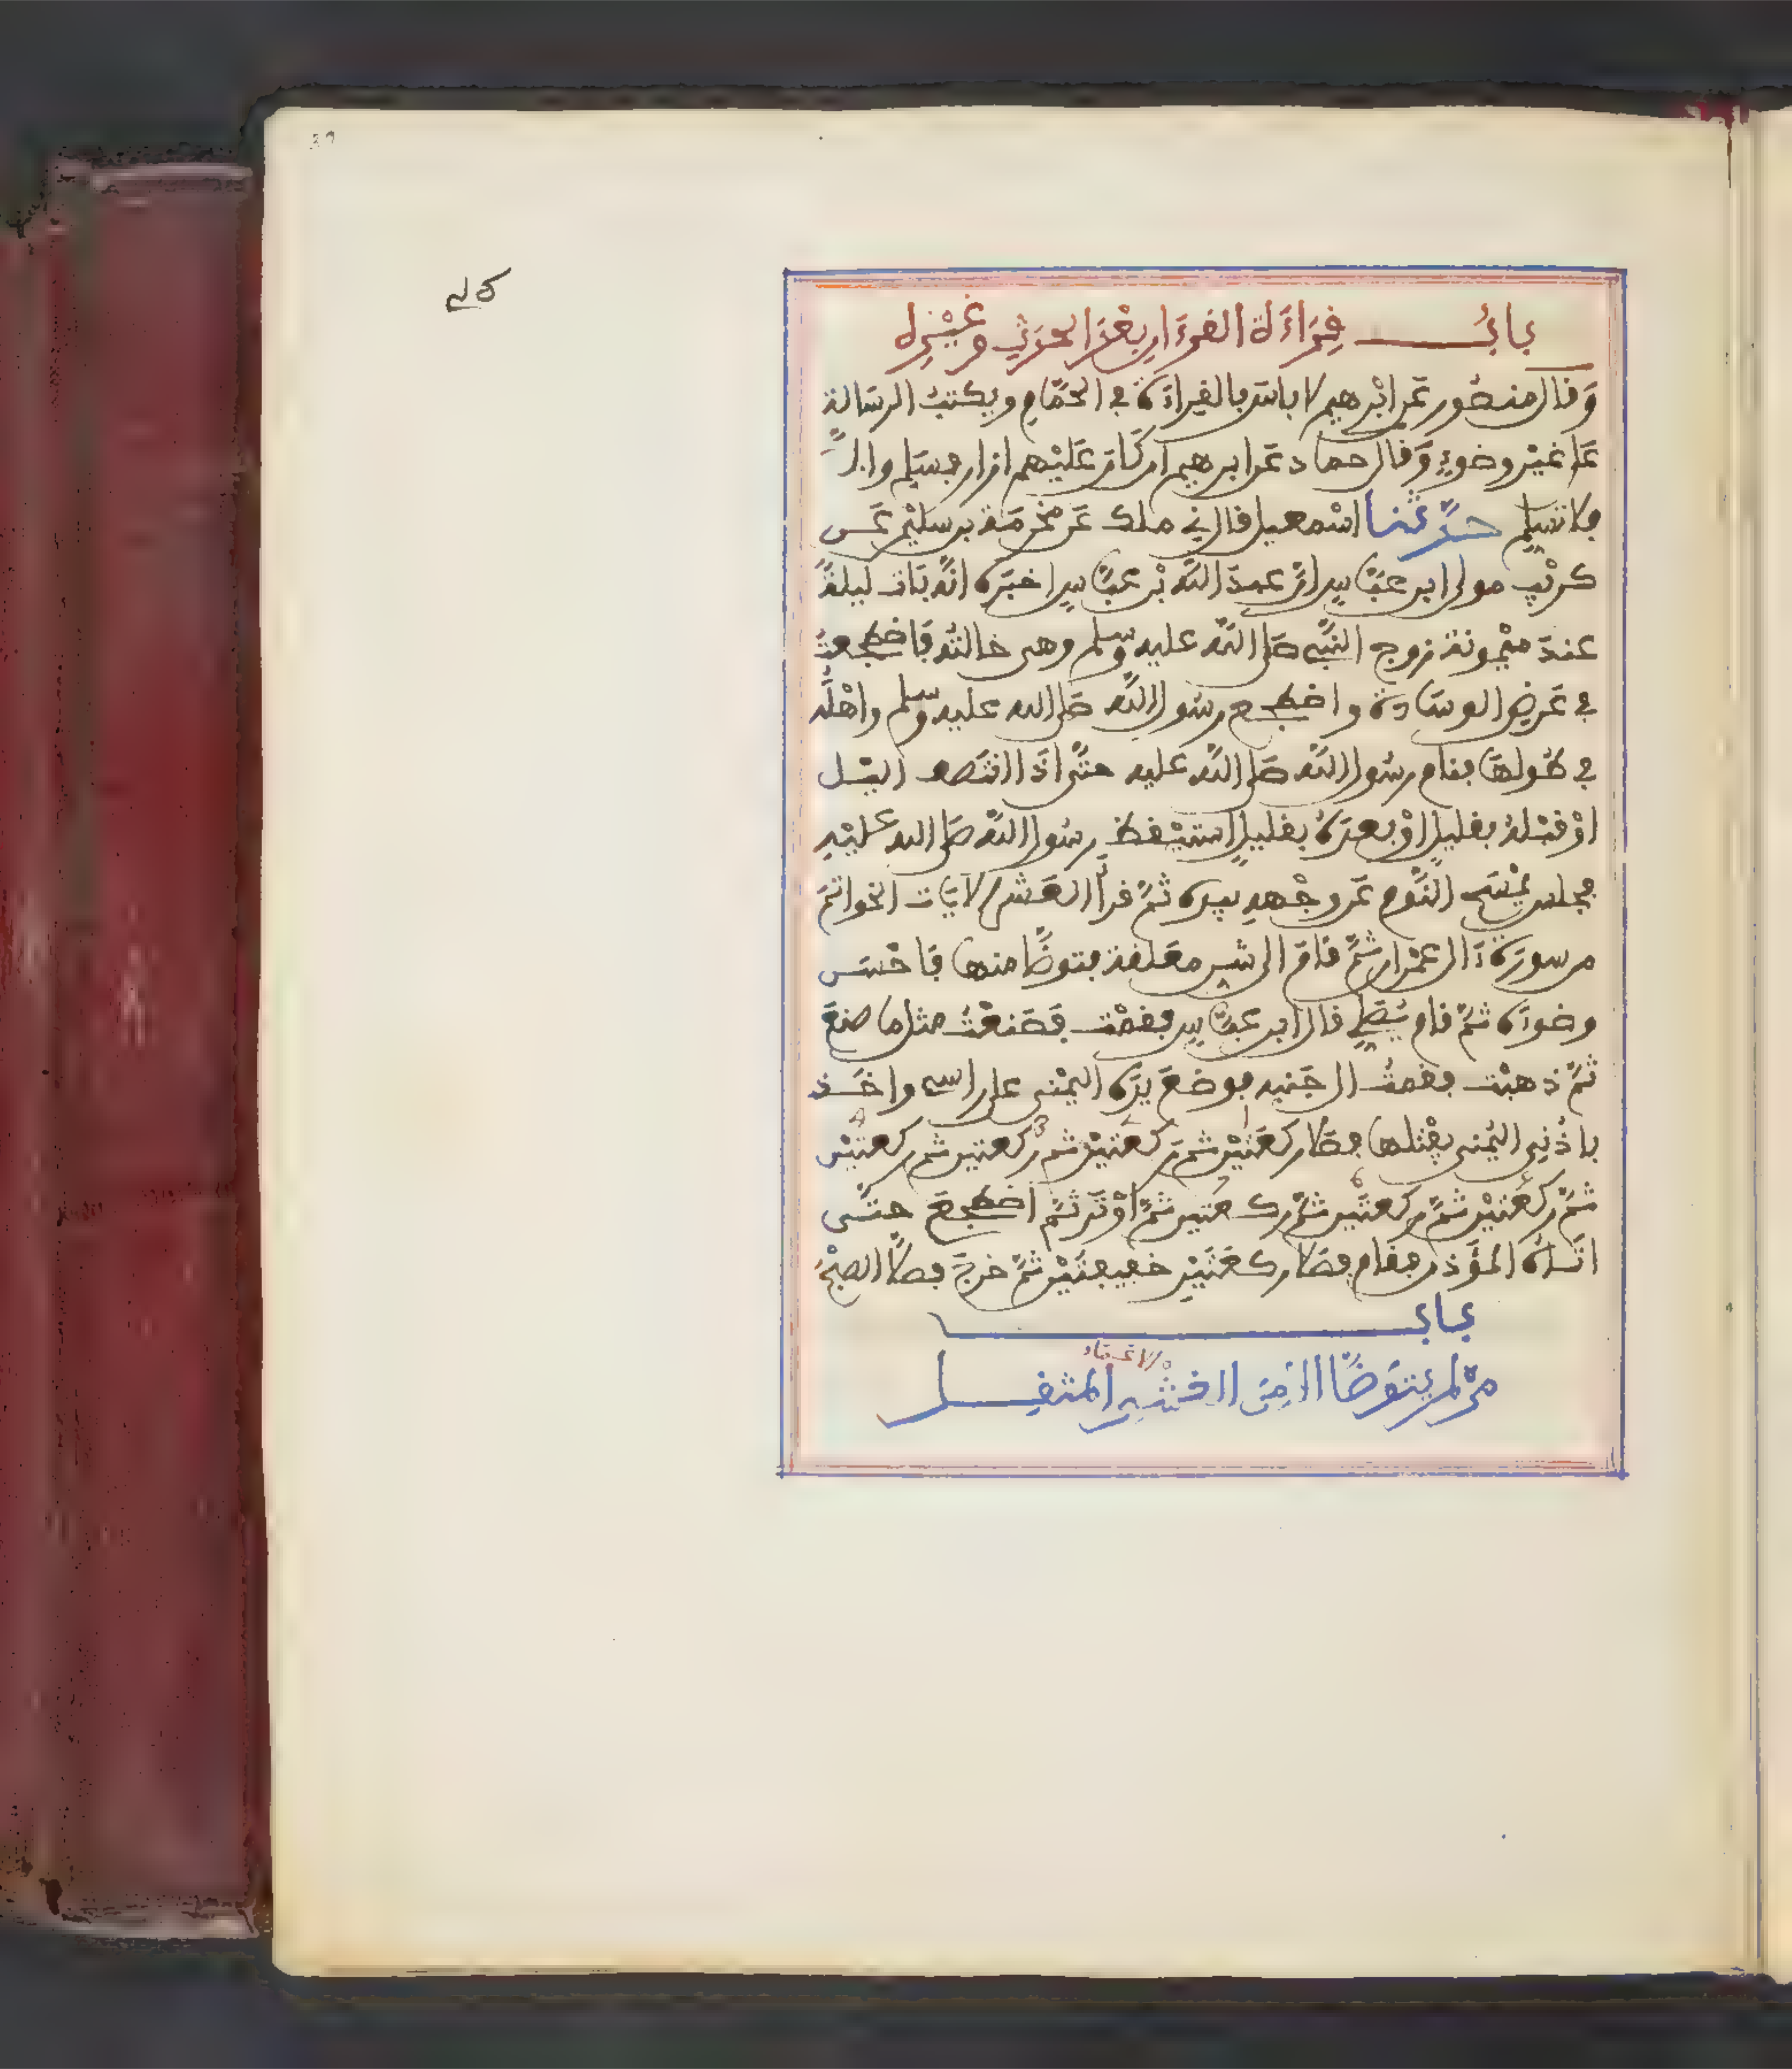 باب قراءة القرءان بعد الحدث وغيره
وقال منصور عن ابرهيم لا باس بالقراءة في الحمام ويكتب الرسالة
على غير وضوء وقال حماد عن ابرهيم ان كان عليهم ازار فسلم والا
فلا تسلم حدثنا اسمعيل قال ني ملك عن مخرمة بن سليمن عن
كريب مولى ابن عباس ان عبد الله بن عباس اخبره انه بات ليلة
عند ميمونة زوج النبي صلى الله عليه وسلم وهي خالته فاضطجعت
في عرض الوسادة واضطجع رسول الله صلى الله عليه وسلم واهله
في طولها فنام رسول الله صلى الله عليه حتى اذا انتصف اليل
او قبله بقليل او بعده بقليل استيقظ رسول الله صلى الله عليه
فجلس يمسح النوم عن وجهه بيده ثم قرأ العشر الآيات الخواتم
من سورة ءال عمران ثم قام الى شن معلقة فتوضأ منها فاحسن
وضوءه ثم قام يصلي قال ابن عباس فقمت فصنعت مثل ما صنع
ثم ذهبت فقمت الى جنبه فوضع يده اليمنى على راسي واخذ
باذني اليمنى يفتلها فصلى ركعتين ثم ركعتين ثم ركعتين ثم ركعتين
ثم ركعتين ثم ركعتين ثم ركعتين ثم اوتر ثم اضطجع حتى
اتاه المؤذن فقام فصلى ركعتين خفيفتين ثم خرج فصلى الصبح
باب
من لم يتوضأ الا من الغشي المثقل